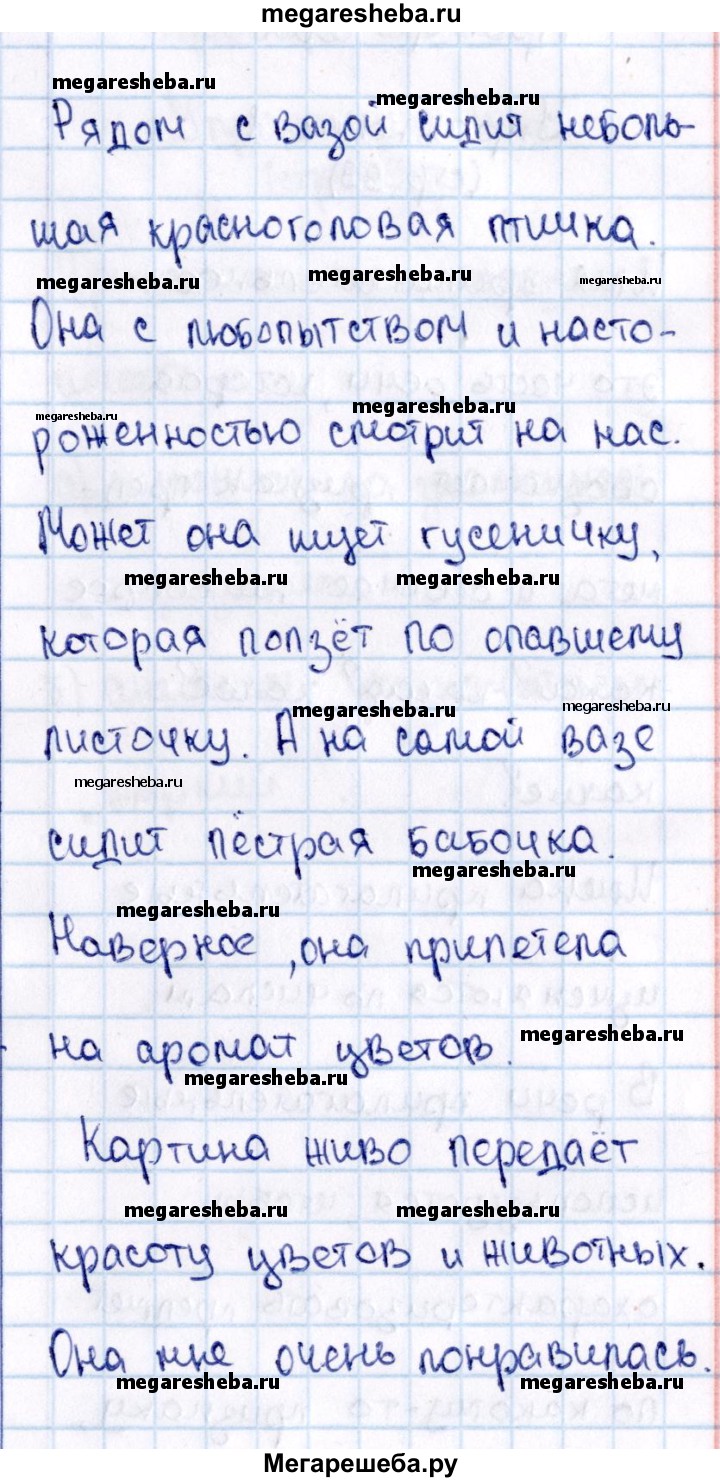 megaresheba.ru
megaresheba.ru
megaresheba.ru
Рядом с вазой сидит неболь-
шая красноголовая птичка.
megaresheba.ru
megaresheba.ru
megaresheba.ru
Она с любопытством и насто-
megaresheba.ru
megaresheba.ru
роженностью смотрит на нас.
Может она ищет гусеничку,
megaresheba.ru
megaresheba.ru
которая ползёт по опавшему
megaresheba.ru
megaresheba.ru
листочку. А на самой вазе
megaresheba.ru
сидит пёстрая бабочка.
megaresheba.ru
megaresheba.ru
Наверное, она прилетела
на аромат цветов.
megaresheba.ru
megaresheba.ru
Картина живо передаёт
megaresheba.ru
megaresheba.ru
красоту цветов и животных.
Она мне очень понравилась.
megaresheba.ru
megaresheba.ru
Мегарешеба.ру